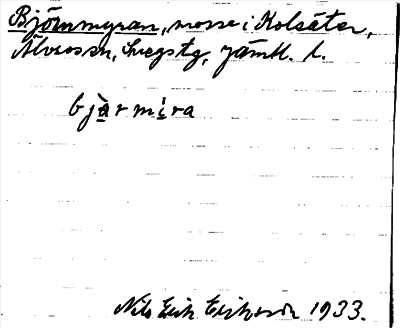 Björnmyran, mosse i Kolsäter,
Älvros sn, Svegs tg, Jämtl. l.
bjàrmìra
Nils Erik Eriksson 1933.